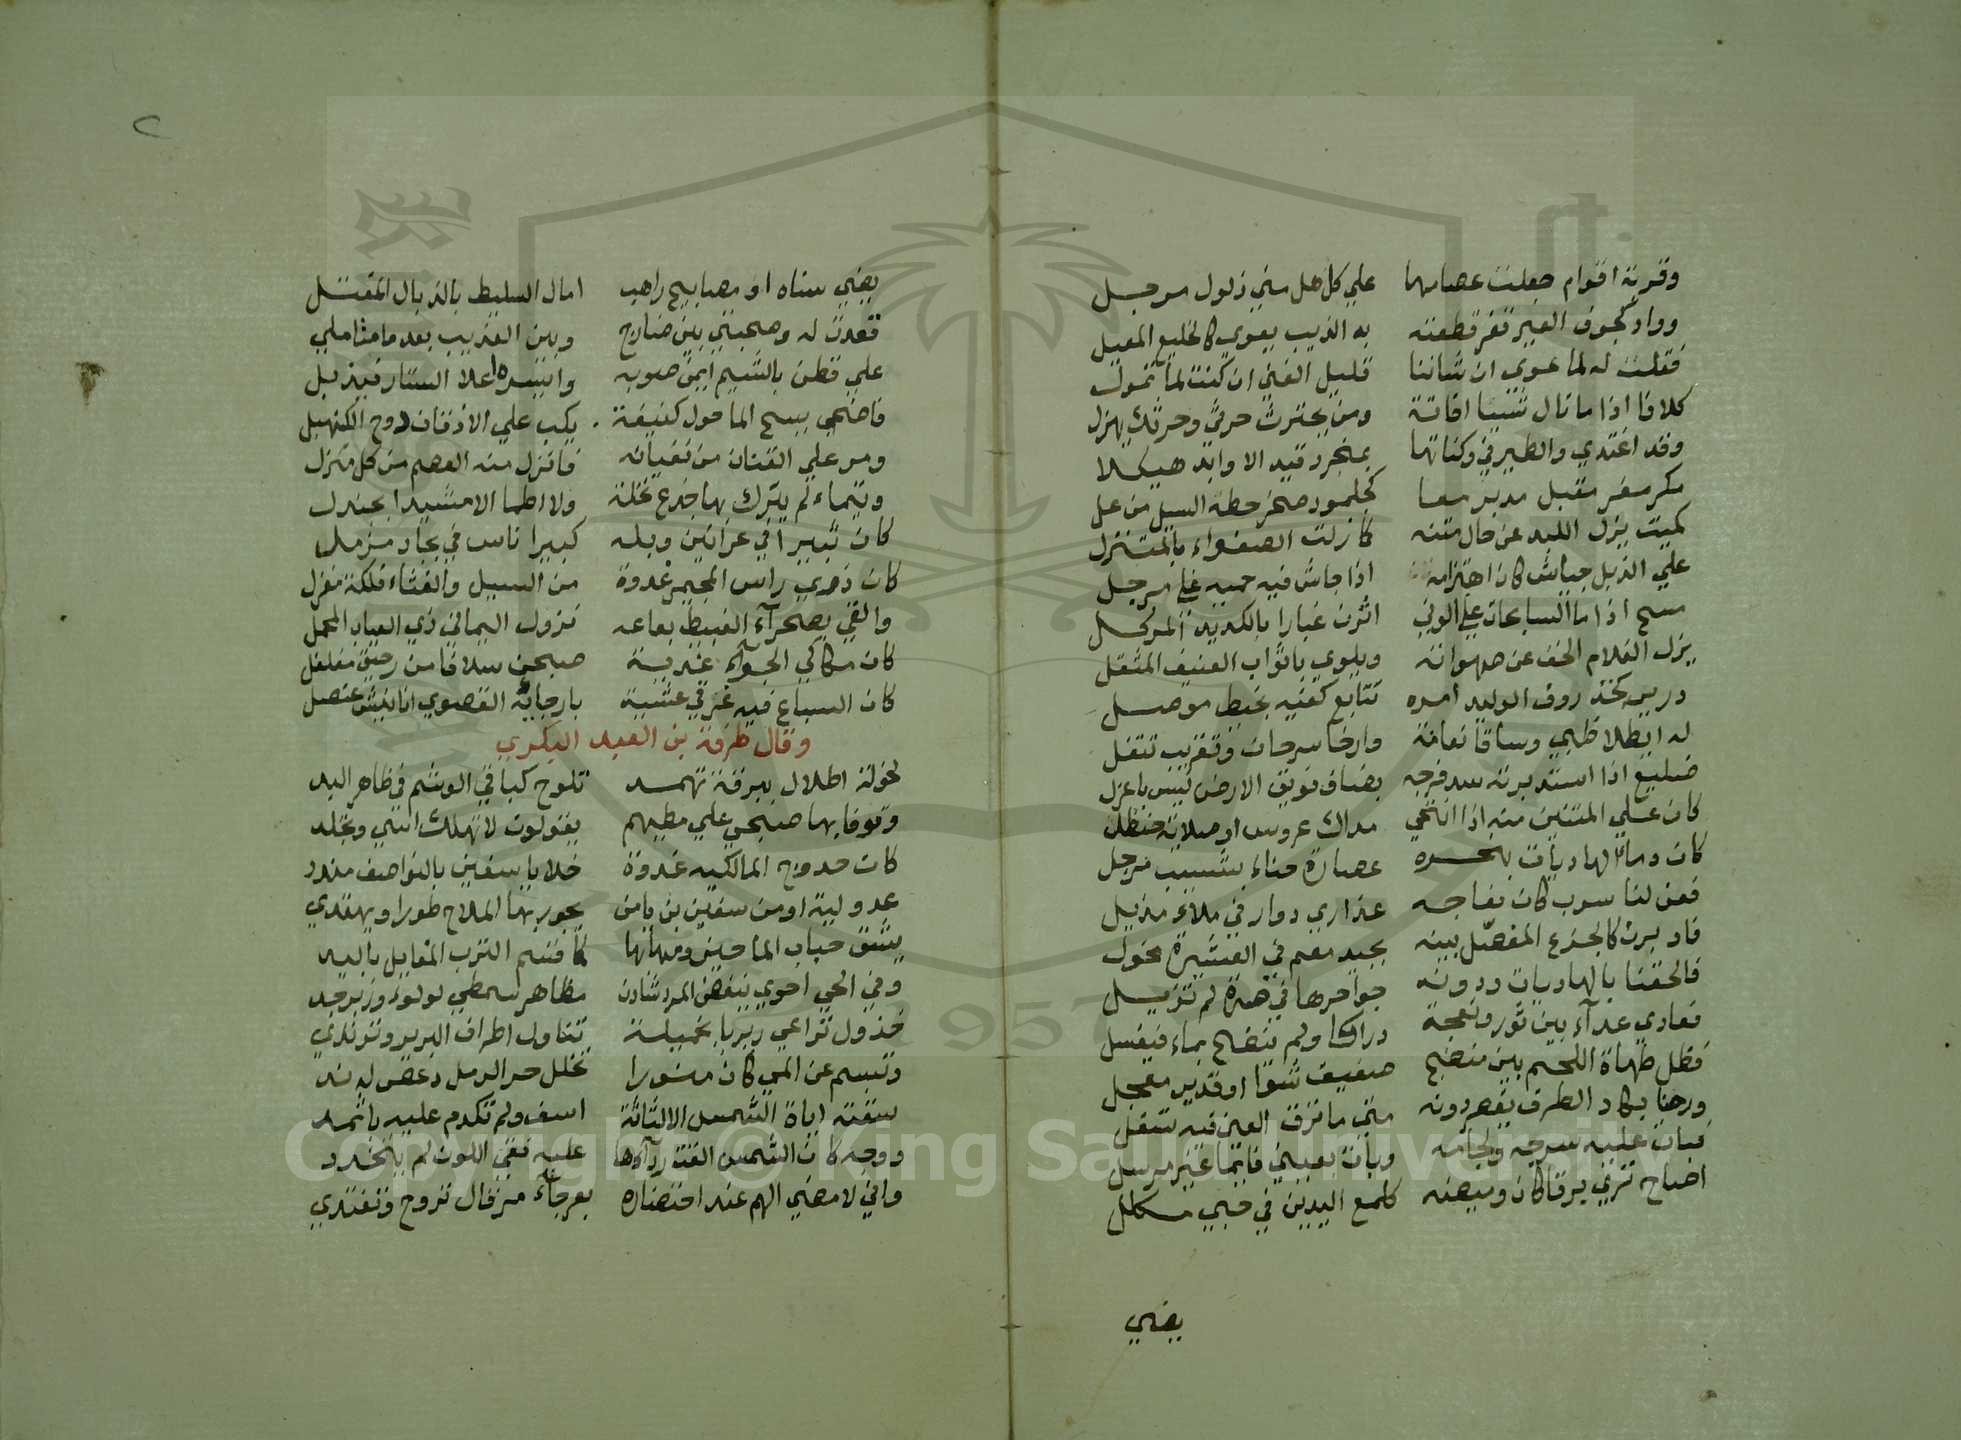 وقربة اقوام جعلت عصامها علي كاهل مني ذلول مرحل
وواد كجوف العير قفر قطعته به الذيب يعوي كالخليع المعيل
فقلت له لما عوي ان شاننا قليل الغني ان كنت لما تمول
كلانا اذا ما نال شيئا افاته ومن يحترث حرثي وحرثك يهزل
وقد اغتدي والطير في وكناتها بمنجرد قيد الاوابد هيكل
مكر مفر مقبل مدبر معا كجلمود صخر حطه السيل من عل
كميت يزل اللبد عن حال متنه كما زلت الصفواء بالمتنزل
علي الذبل جياش كان اهتزامه اذا جاش فيه حميه غلي مرجل
مسح اذا ما السابحات علي الوني اثرن غبارا بالكديد المركل
يزل الغلام الخف عن صهواته ويلوي باثواب العنيف المثقل
درير كخذروف الوليد امره تتابع كفيه بخيط موصل
له ايطلا ظبي وساقا نعامة وارخا سرحان وتقريب تتفل
ضليع اذا استدبرته سد فرجه بضاف فويق الارض ليس باعزل
كان علي المتنين منه اذا انتحي مداك عروس او صلاية حنظل
كان دماء الهاديات بنحره عصارة حناء بشيب مرجل
فعن لنا سرب كان نعاجه عذاري دوار في ملاء مذيل
فادبرن كالجزع المفصل بينه بجيد معم في العشيرة مخول
فالحقنا بالهاديات ودونه جواحرها في صرة لم تزيل
فعادي عداء بين ثور ونعجة دراكا ولم ينضح بماء فيغسل
فظل طهاة اللحم بين منضج صفيف شوا او قدير معجل
ورحنا يكاد الطرف يقصر دونه متي ما ترق العين فيه تسفل
فبات عليه سرجه ولجامه وبات بعيني قائما غير مرسل
اصاح تري برقا كان وميضه كلمع اليدين في حبي مكلل
يضي
يضي سناه او مصابيح راهب امال السليط بالذبال المفتل
قعدت له وصحبتي بين ضارج وبين العذيب بعد ما متاملي
علي قطن بالشيم ايمن صوبه وايسره اعلا الستار فيذبل
فاضحي يسح الما حول كتيفة يكب علي الاذقان دوح الكنهبل
ومر علي القنان من نفيانه فانزل منه العصم من كل منزل
وتيماء لم يترك بها جذع نخلة ولا اطما الا مشيدا بجندل
كان ثبيرا في عرانين وبله كبير اناس في بجاد مزمل
كان ذري راس المجيمر غدوة من السيل والغثاء فلكة مغزل
والقي بصحراء الغبيط بعاعه نزول اليماني ذي العياب المحمل
كان مكاكي الجواء غدية صبحن سلافا من رحيق مفلفل
كان السباع فيه غرقي عشية بارجايه القصوي انابيش عنصل
وقال طرفة بن العبد البكري
لخولة اطلال ببرقة ثهمد تلوح كباقي الوشم في ظاهر اليد
وقوفا بها صحبي علي مطيهم يقولون لا تهلك اسي وتجلد
كان حدوج المالكيه غدوة خلايا سفين بالنواصف من دد
عدولية او من سفين بن يامن يجور بها الملاح طورا ويهتدي
يشق حباب الما حيزومها بها كما قسم الترب المفايل باليد
وفي الحي احوي ينفض المرد شادن مظاهر سمطي لولو وزبرجد
خذول تراعي ربربا بخميلة تناول اطراف البرير وترتدي
وتبسم عن المي كان منورا تخلل حر الرمل دعص له ند
سقته اياة الشمس الا لثاته اسف ولم تكدم عليه باثمد
ووجه كان الشمس القت رداءها عليه نقي اللون لم يتخدد
واني لامضي الهم عند احتضاره بعرجاء مرقال تروح وتغتدي